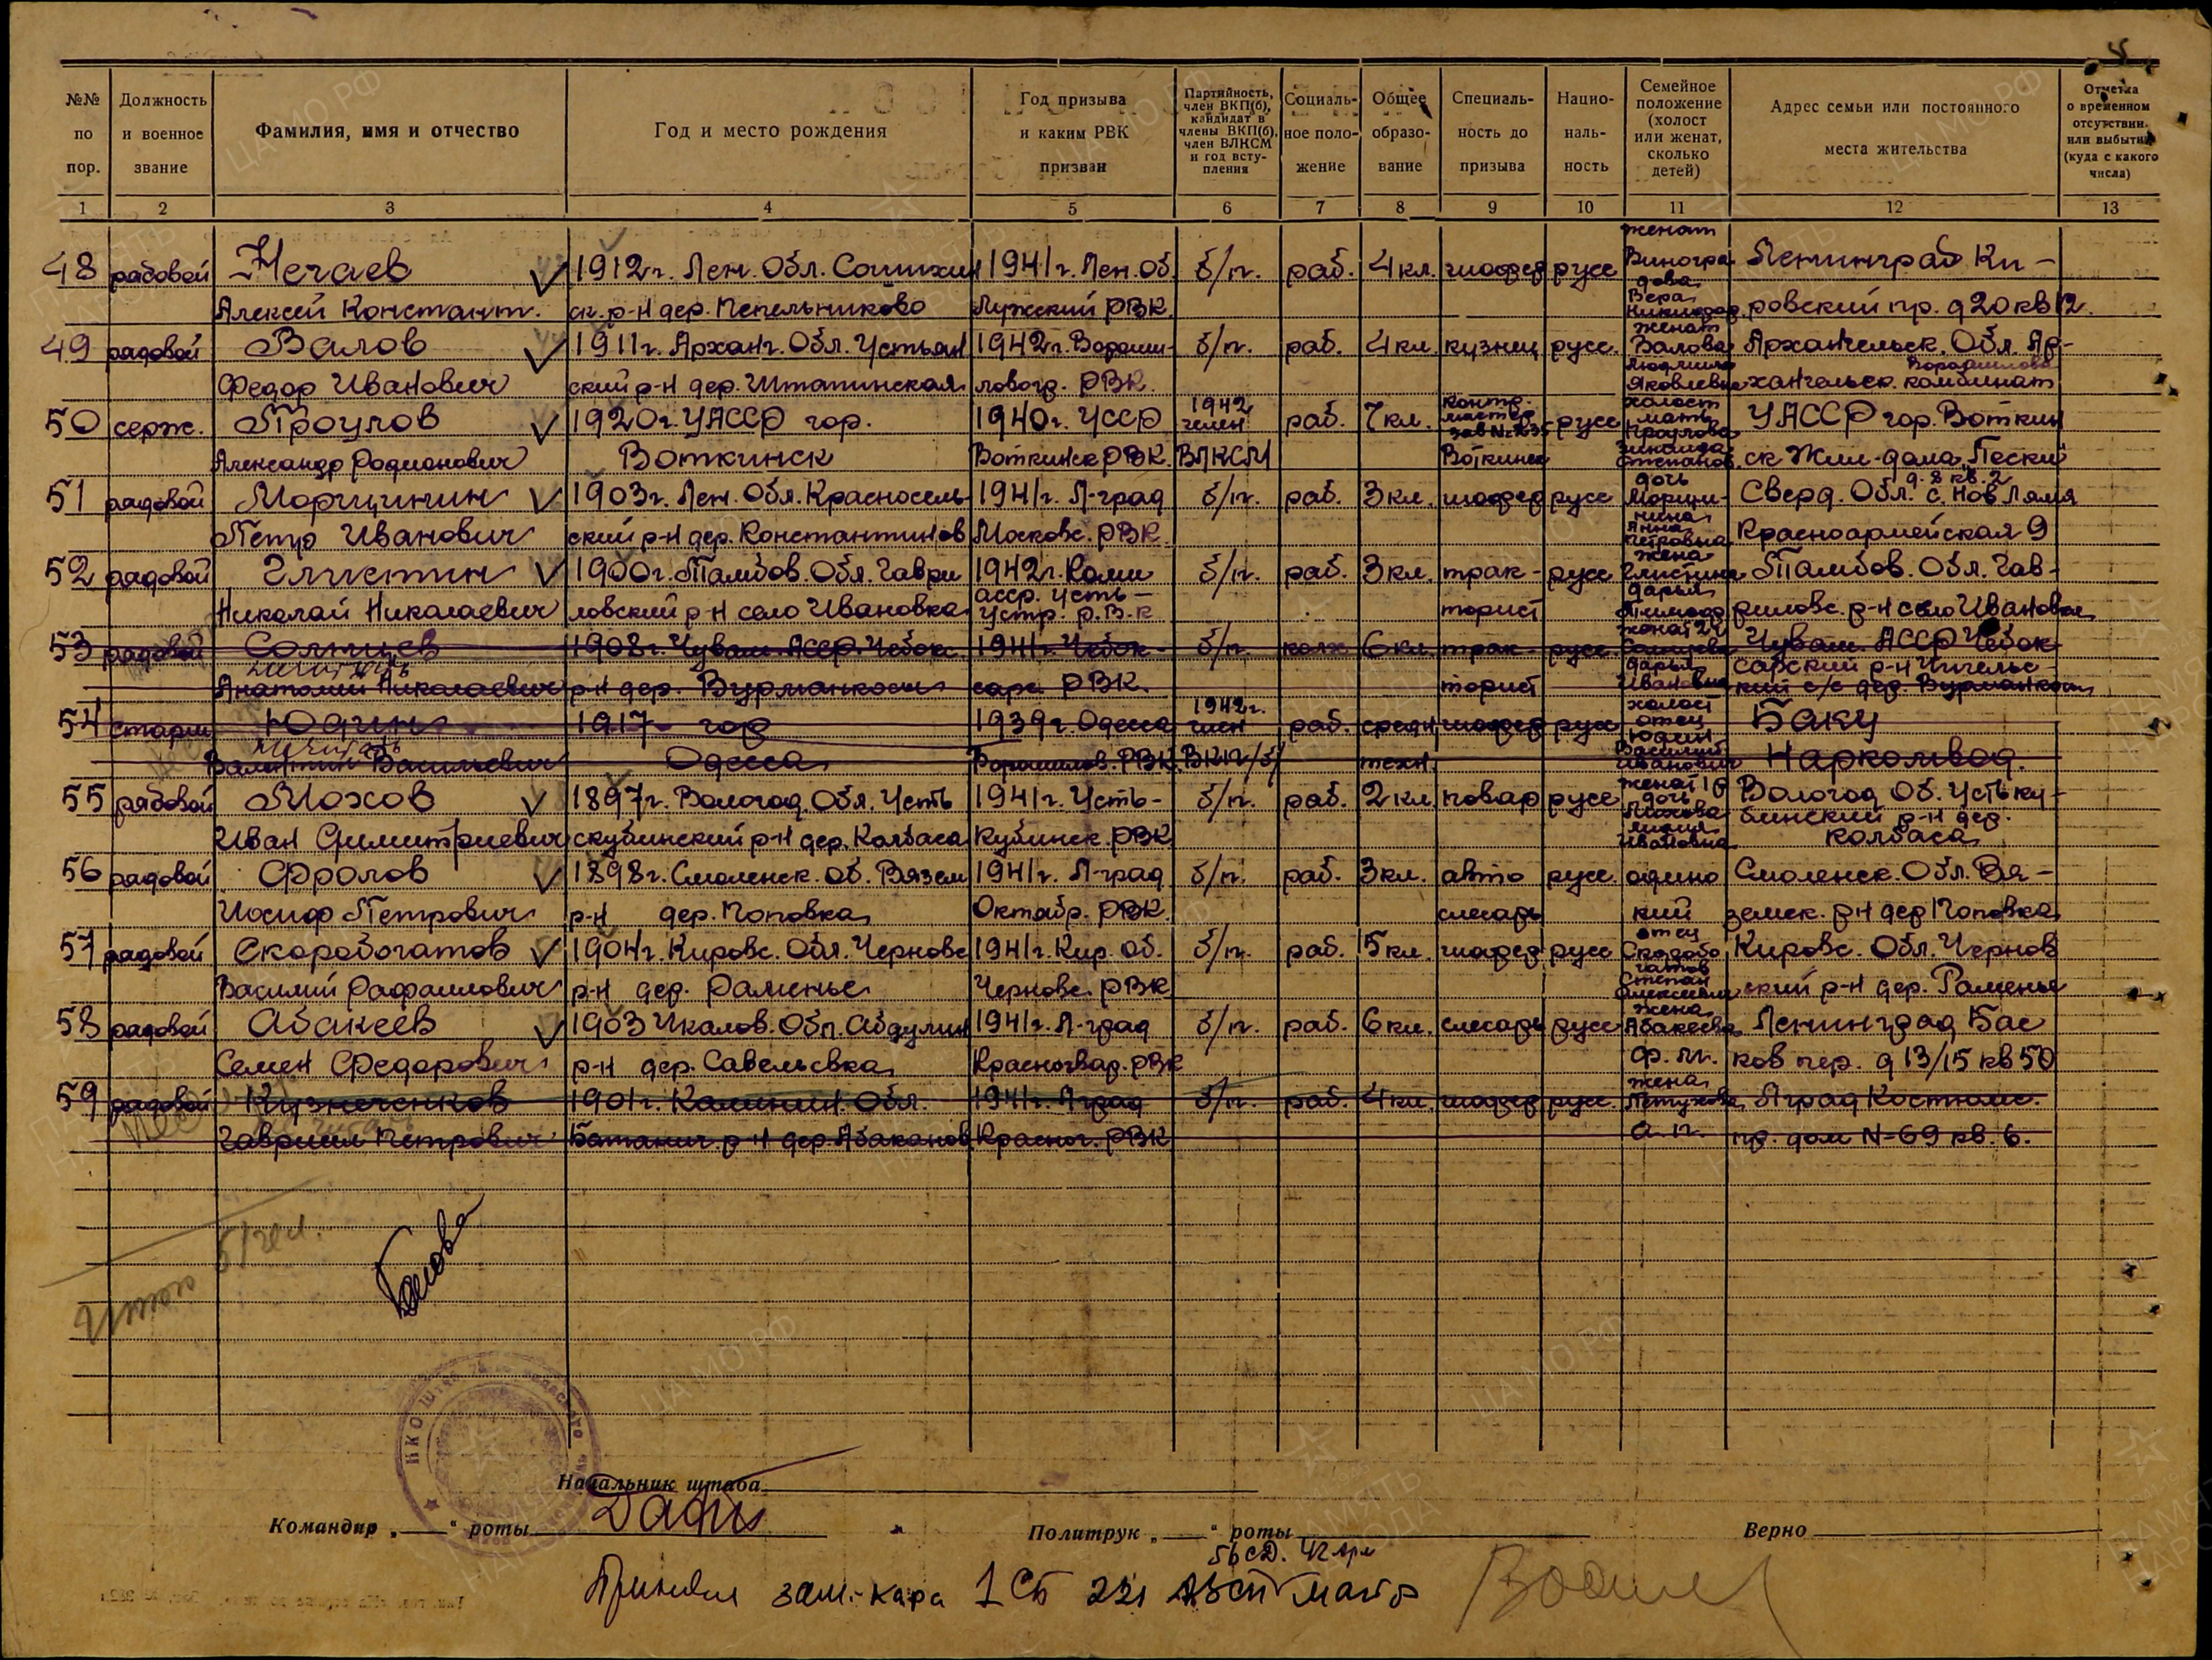 №№ по пор.
Должность и военное звание
Фамилия, имя и отчество
Год и место рождения
Год призыва и каким РВК призван
Партийность, член ВКП(б), кандидат в члены ВКП(б), член ВЛКСМ и год вступления
Социальное положение
Общее образование
Специальность до призыва
Национальность
Семейное положение (холост или женат, сколько детей)
Адрес семьи или постоянного места жительства
Отметка о временном отсутствии или выбытии (куда с какого числа)
1 2 3 4 5 6 7 8 9 10 11 12 13
48 рядовой Нечаев 1912 г. Лен. Обл. 1941 г. Лен. Об. б/п. раб. 4 кл. шофер русс женат Виноградова Вера Ленинград Ки-
Алексей Констант. ск. р-н дер. Пепельниково Лужский РВК. ровский пр. д 20 кв 12.
49 рядовой Валов 1911 г. Арханг. Обл. Устьян 1942 г. Вороши- б/п. раб. 4 кл. кузнец русс. женат Валова Людмила Яковлевна Архангельск. Обл. Ар-
Федор Иванович ский р-н дер. Штапинская ловогр. РВК. хангельск. комбинат Ворошилова
50 серж. Проулов 1920 г. УАССР гор. 1940 г. УССР 1942 член раб. 7 кл. контр. мастер русс холост мать УАССР гор. Воткин
Александр Родионович Воткинск Воткинск РВК. ВЛКСМ Воткинск ск Жил-дома, Пески д. 8 кв. 2
51 рядовой Морщинин 1903 г. Лен. Обл. Красносель- 1941 г. Л-град б/п. раб. 3 кл. шофер русс дочь Морщинина Анна Петровна Сверд. Обл. с. Нов Ляля
Петр Иванович ский р-н дер. Константинов Московс. РВК. Красноармейская 9
52 рядовой Глистин 1900 г. Тамбов. Обл. Гаври 1942 г. Коми б/п. раб. 3 кл. трак- русс жена Глистина Дарья Тамбов. Обл. Гав-
Николай Николаевич ловский р-н село Ивановка асср. Усть- Устр. р.В.К торист риловс. р-н село Ивановка
53 рядовой Солнцев 1908 г. Чуваш. АССР. Чебокс. 1941 г. Чебок- б/п. колх 6 кл. трак- русс. женат Дарья Ивановна Чуваш. АССР Чебок
Анатолий Николаевич р-н дер. Вурманкосы сарс РВК. торист сарский р-н Чигельс-кий с/с дер. Вурманкосы
54 старш. Юдин 1917 гор 1939 г. Одесса 1942 г. член раб. средн шофер русс холост отец Юдин Василий Иванович Баку
Валентин Васильевич Одесса Ворошилов. РВК. ВКП/б/ техн. Наркомвод.
55 рядовой Мохов 1897 г. Вологод. Обл. Усть 1941 г. Усть- б/п. раб. 2 кл. повар русс женат 1 дочь Мохова Ивановна Вологод Об. Усть ку-
Иван Димитриевич скубинский р-н дер. Колбаса Кубинск. РВК бинский р-н дер. Колбаса
56 рядовой Фролов 1898 г. Смоленск. Об. Вязем 1941 г. Л-град б/п. раб. 3 кл. авто русс одино Смоленск. Обл. Вя-
Иосиф Петрович р-н дер. Поповка Октябр. РВК. слесарь кий земск. р-н дер Поповка
57 рядовой Скоробогатов 1904 г. Кировс. Обл. Черновс 1941 г. Кир. Об. б/п. раб. 5 кл. шофер русс отец Скоробогатов Степан Алексеевич Кировс. Обл. Чернов
Василий Рафаилович р-н дер. Раменье Черновс. РВК ский р-н дер. Раменье
58 рядовой Абакеев 1903 Чкалов. Обл. Абдулин 1941 г. Л-град б/п. раб. 6 кл. слесарь русс жена Абакеева Ленинград Бас
Семен Федорович р-н дер. Савельевка Красногвар. РВК Ф. П. ков пер. д 13/15 кв 50
59 рядовой Кузнеченков 1901 г. Калинин. Обл. 1941 г. Л-град б/п. раб. 4 кл. шофер русс. жена Петухова Л-град Костюш.
Гавриил Петрович р-н дер. Абаканов Красног. РВК А. П. пр. дом N-69 кв. 6.
Итого 51 чел.
Начальник штаба
Командир „ “ роты
Политрук „ “ роты
Верно
56 СД. 42 Арм
Принял зам.-кара 1 СБ 221